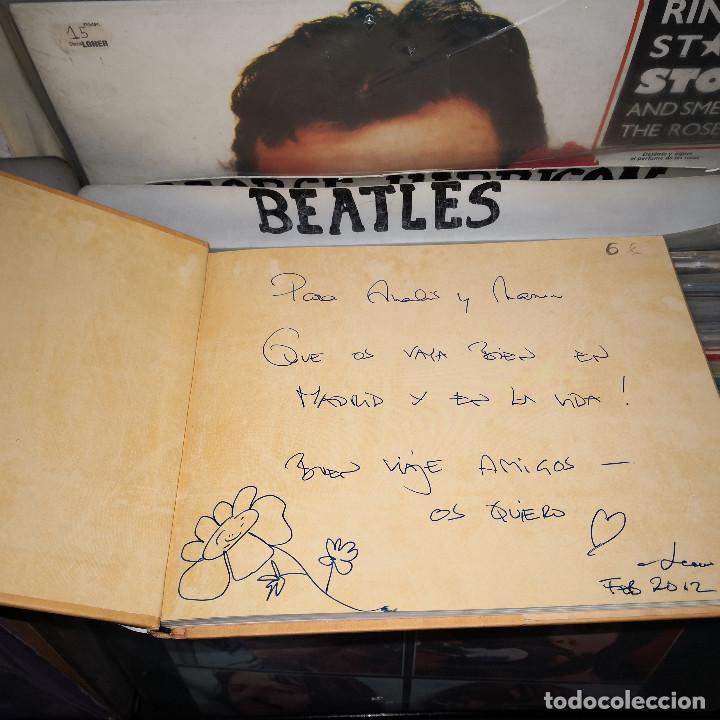 15
LONER
RIN
ST★
STO
AND SME
THE ROSE
BEATLES
6 €
Para Analis y
QUE OS VAYA BIEN EN
MADRID Y EN LA VIDA!
BUEN VIAJE AMIGOS —
OS QUIERO
FEB 2012
todocoleccion